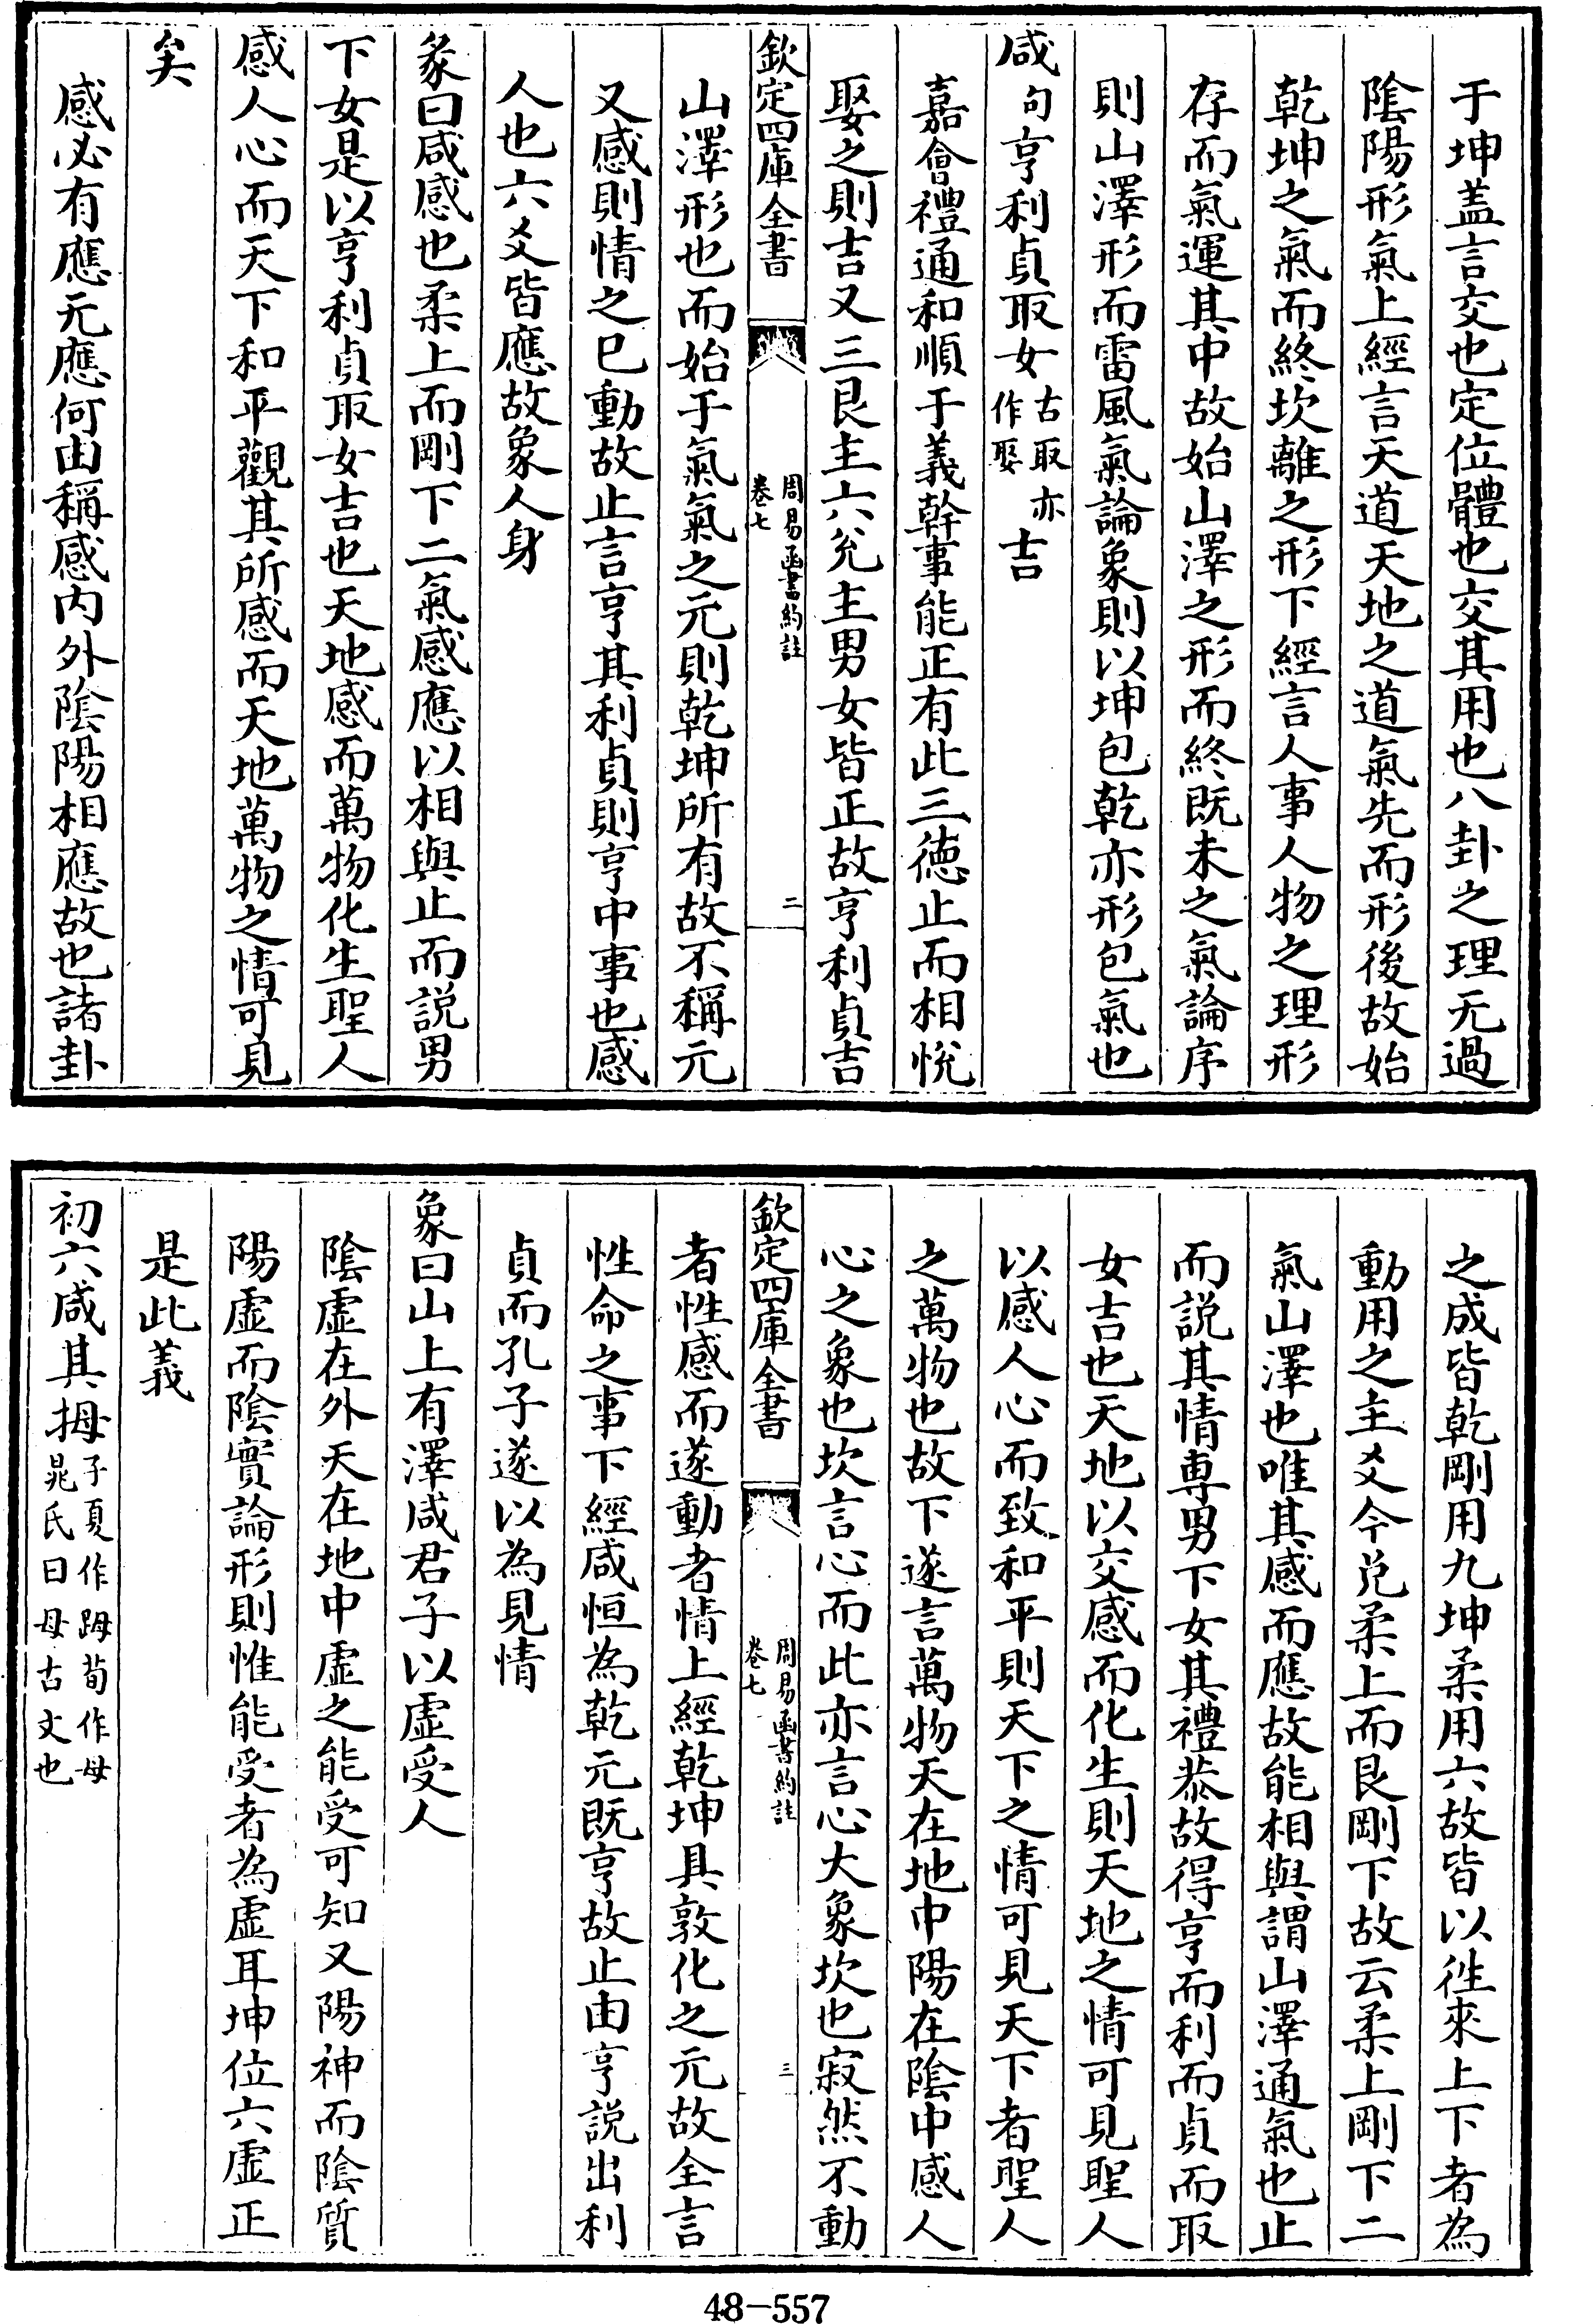 于坤盖言交也定位體也交其用也八卦之理无過
陰陽形氣上經言天道天地之道氣先而形後故始
乾坤之氣而終坎離之形下經言人事人物之理形
存而氣運其中故始山澤之形而終既未之氣論序
則山澤形而雷風氣論象則以坤包乾亦形包氣也
咸句亨利貞取女古取亦作娶吉
嘉會禮通和順于義幹事能正有此三徳止而相悅
娶之則吉又三艮主六兊主男女皆正故亨利貞吉
欽定四庫全書
周易函書約註
卷七
二
山澤形也而始于氣氣之元則乾坤所有故不稱元
又感則情之已動故止言亨其利貞則亨中事也感
人也六爻皆應故象人身
彖曰咸感也柔上而剛下二氣感應以相與止而說男
下女是以亨利貞取女吉也天地感而萬物化生聖人
感人心而天下和平觀其所感而天地萬物之情可見
矣
感必有應无應何由稱感内外陰陽相應故也諸卦
之成皆乾剛用九坤柔用六故皆以徃來上下者為
動用之主爻今兊柔上而艮剛下故云柔上剛下二
氣山澤也唯其感而應故能相與謂山澤通氣也止
而說其情專男下女其禮恭故得亨而利而貞而取
女吉也天地以交感而化生則天地之情可見聖人
以感人心而致和平則天下之情可見天下者聖人
之萬物也故下遂言萬物天在地中陽在陰中感人
心之象也坎言心而此亦言心大象坎也寂然不動
欽定四庫全書
周易函書約註
卷七
三
者性感而遂動者情上經乾坤具敦化之元故全言
性命之事下經咸恒為乾元既亨故止由亨說出利
貞而孔子遂以為見情
象曰山上有澤咸君子以虛受人
陰虛在外天在地中虛之能受可知又陽神而陰質
陽虛而陰實論形則惟能受者為虛耳坤位六虛正
是此義
初六咸其拇子夏作䟦荀作母晁氏曰母古文也
48-557